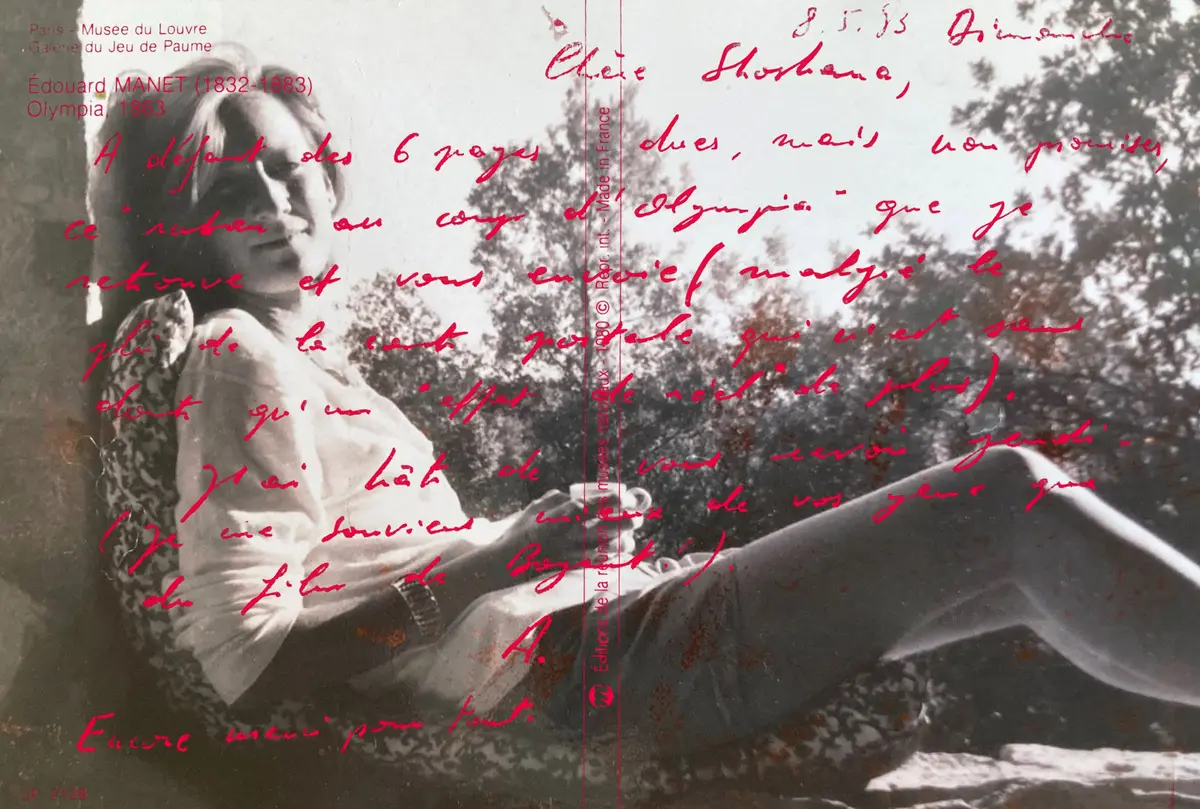 Paris - Musée du Louvre
Galerie du Jeu de Paume
Édouard MANET (1832-1883)
Olympia, 1863
8.5.83 Dimanche
Chère Shoshana,
A défaut des 6 pages dues, mais non promises,
ce "ruban au coup d'Olympia" que je
retrouve et vous envoie (malgré le
pli de la carte postale qui n'est sans
doute qu'un "effet de réel" de plus).
J'ai hâte de vous revoir jeudi.
(Je me souviens mieux de vos yeux que
du film de Bogart!).
A.
Encore merci pour tout.
Éditions de la réunion des musées nationaux - 1980 © Repr. int. - Made in France